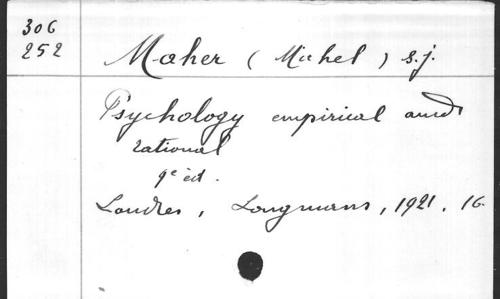 306
252
Maher (Michel) s.j.
Psychology empirical and
rational
9e éd.
Londres, Longmans, 1921, 16.